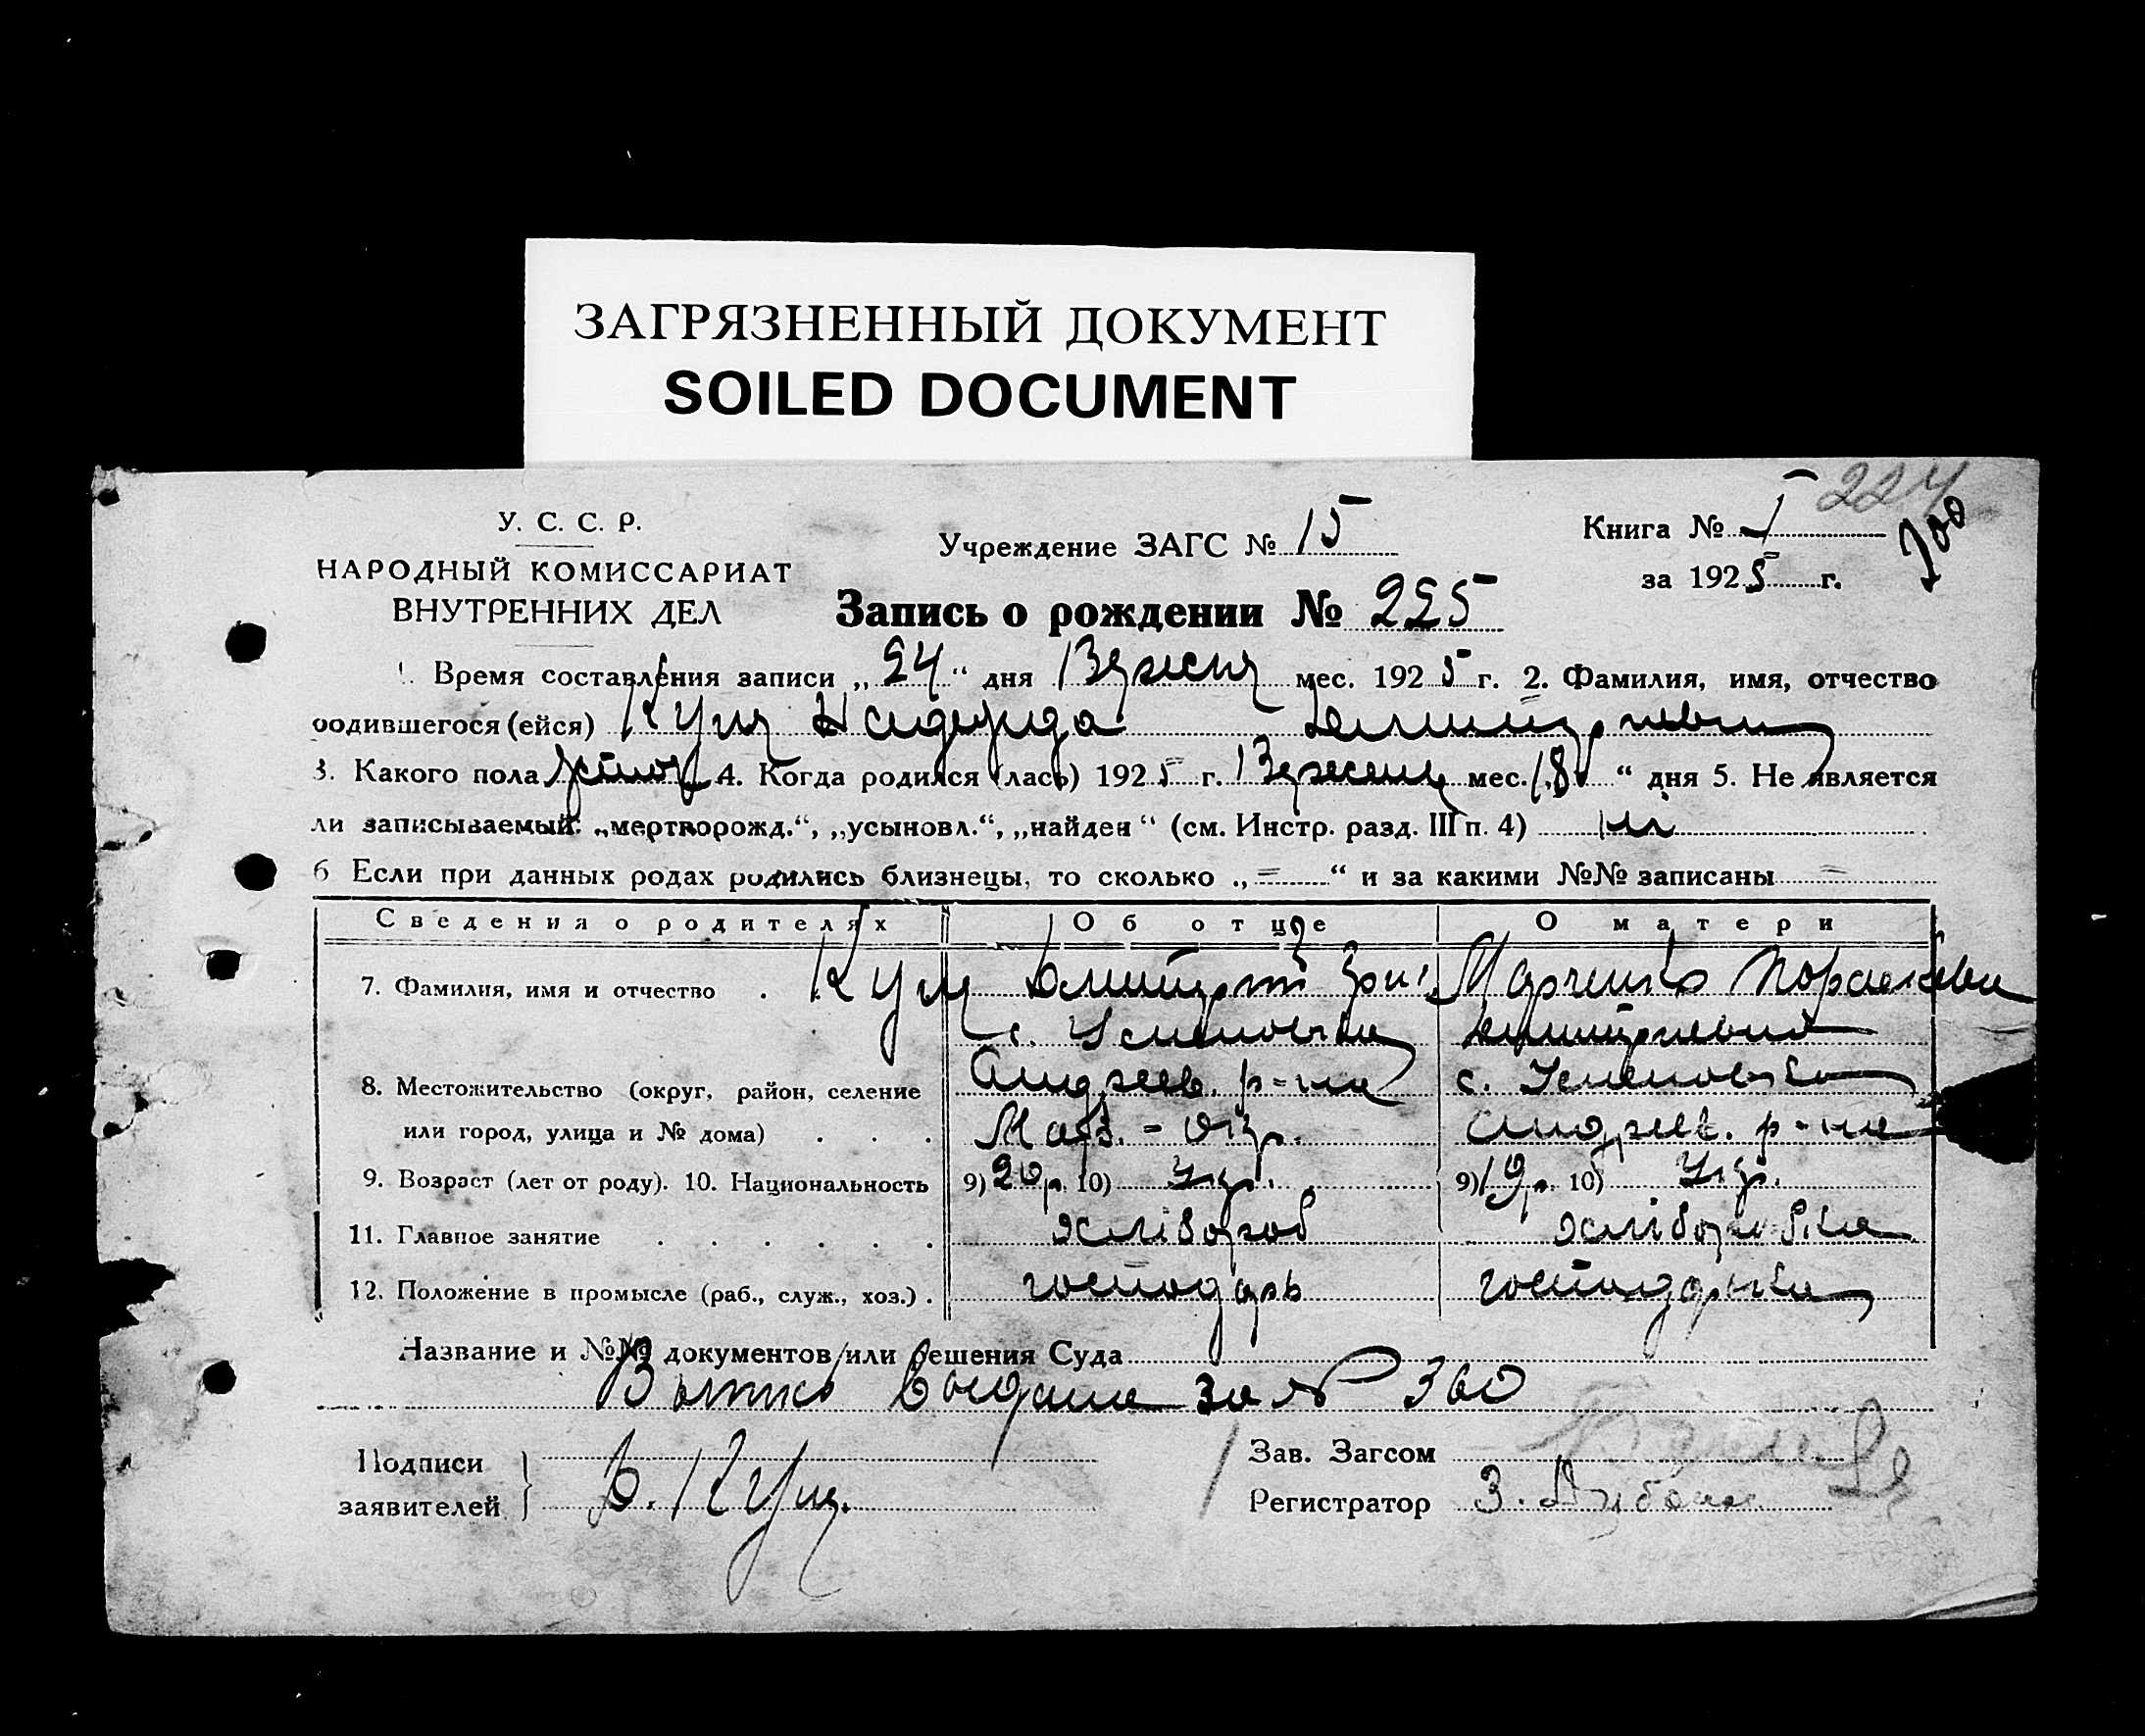 ЗАГРЯЗНЕННЫЙ ДОКУМЕНТ
SOILED DOCUMENT
224
У. С. С. Р.
НАРОДНЫЙ КОМИССАРИАТ
ВНУТРЕННИХ ДЕЛ
Учреждение ЗАГС № 15
Книга №
за 1925 г.
Запись о рождении № 225
1. Время составления записи „24“ дня Вересня мес. 1925 г. 2. Фамилия, имя, отчество
родившегося (ейся) Куц
3. Какого пола 4. Когда родился (лась) 1925 г. Вересень мес. „18“ дня 5. Не является
ли записываемый: „мертворожд.“, „усыновл.“, „найден“ (см. Инстр. разд. III п. 4) ні
6 Если при данных родах родились близнецы, то сколько „=“ и за какими №№ записаны =
Сведения о родителях Об отце О матери
7. Фамилия, имя и отчество . Куц Дмитрій Гри. Марченко Пораскева
Дмитриевна
8. Местожительство (округ, район, селение с. Успеновка Андреев. р-на с. Успеновка
или город, улица и № дома) . . . Андреев. р-на
9. Возраст (лет от роду). 10. Национальность 9) 20 р. 10) Укр. 9) 19 р. 10) Укр.
11. Главное занятие . . . . . . хлібороб хліборобка
12. Положение в промысле (раб., служ., хоз.) . господарь господарька
Название и №№ документов или решения Суда
видана за № 360
Подписи
заявителей Д. Куц.
Зав. Загсом
Регистратор З.